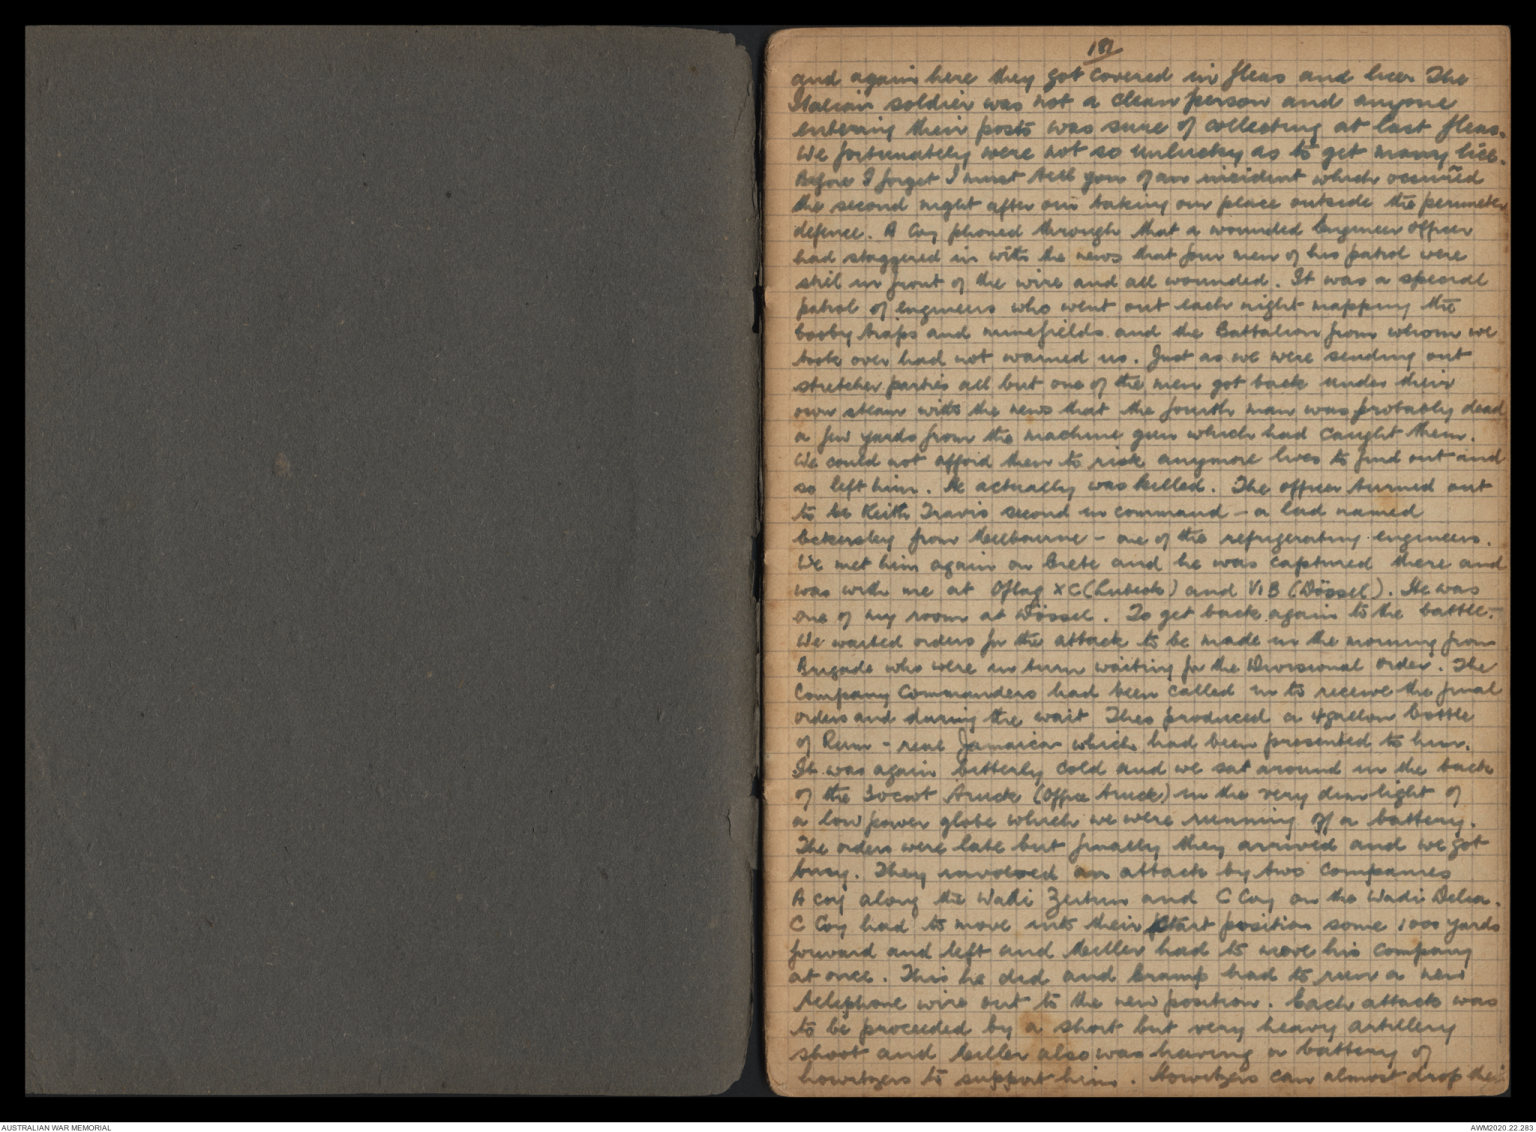 181
and again here they got covered in fleas and lice. The
Italian soldier was not a clean person and anyone
entering their posts was sure of collecting at last fleas.
We fortunately were not so unlucky as to get many lice.
Before I forget I must tell you of an incident which occurred
the second night after our taking our place outside the perimeter
defence. A Coy phoned through that a wounded Engineer Officer
had staggered in with the news that four men of his patrol were
still in front of the wire and all wounded. It was a special
patrol of engineers who went out each night mapping the
booby traps and minefields and the Battalion from whom we
took over had not warned us. Just as we were sending out
stretcher parties all but one of the men got back under their
own steam with the news that the fourth man was probably dead
a few yards from the machine gun which had caught them.
We could not afford then to risk anymore lives to find out and
so left him. He actually was killed. The officer turned out
to be Keith Travis second in command - a lad named
from Melbourne - one of the refrigerating engineers.
We met him again on Crete and he was captured there and
was with me at Oflag XC (Lubeck) and VIB (Dössel). He was
one of my room at Dössel. To get back again to the battle:-
We waited orders for the attack to be made in the morning from
Brigade who were in turn waiting for the Divisional order. The
Company Commanders had been called in to receive the final
orders and during the wait Theo produced a 4 gallon bottle
of Rum - real Jamaica which had been presented to him.
It was again bitterly cold and we sat around in the back
of the 30cwt truck (Office truck) in the very dim light of
a low power globe which we were running off a battery.
The orders were late but finally they arrived and we got
busy. They involved an attack by two Companies
A coy along the Wadi Zeitun and C Coy on the Wadi Delia.
C Coy had to move into their start position some 1000 yards
forward and left and Miller had to move his company
at once. This he did and Cramp had to run a new
telephone wire out to the new position. Each attack was
to be proceeded by a short but very heavy artillery
shoot and Miller also was having a battery of
howitzers to support him. Howitzers can almost drop their
AUSTRALIAN WAR MEMORIAL
AWM2020.22.283